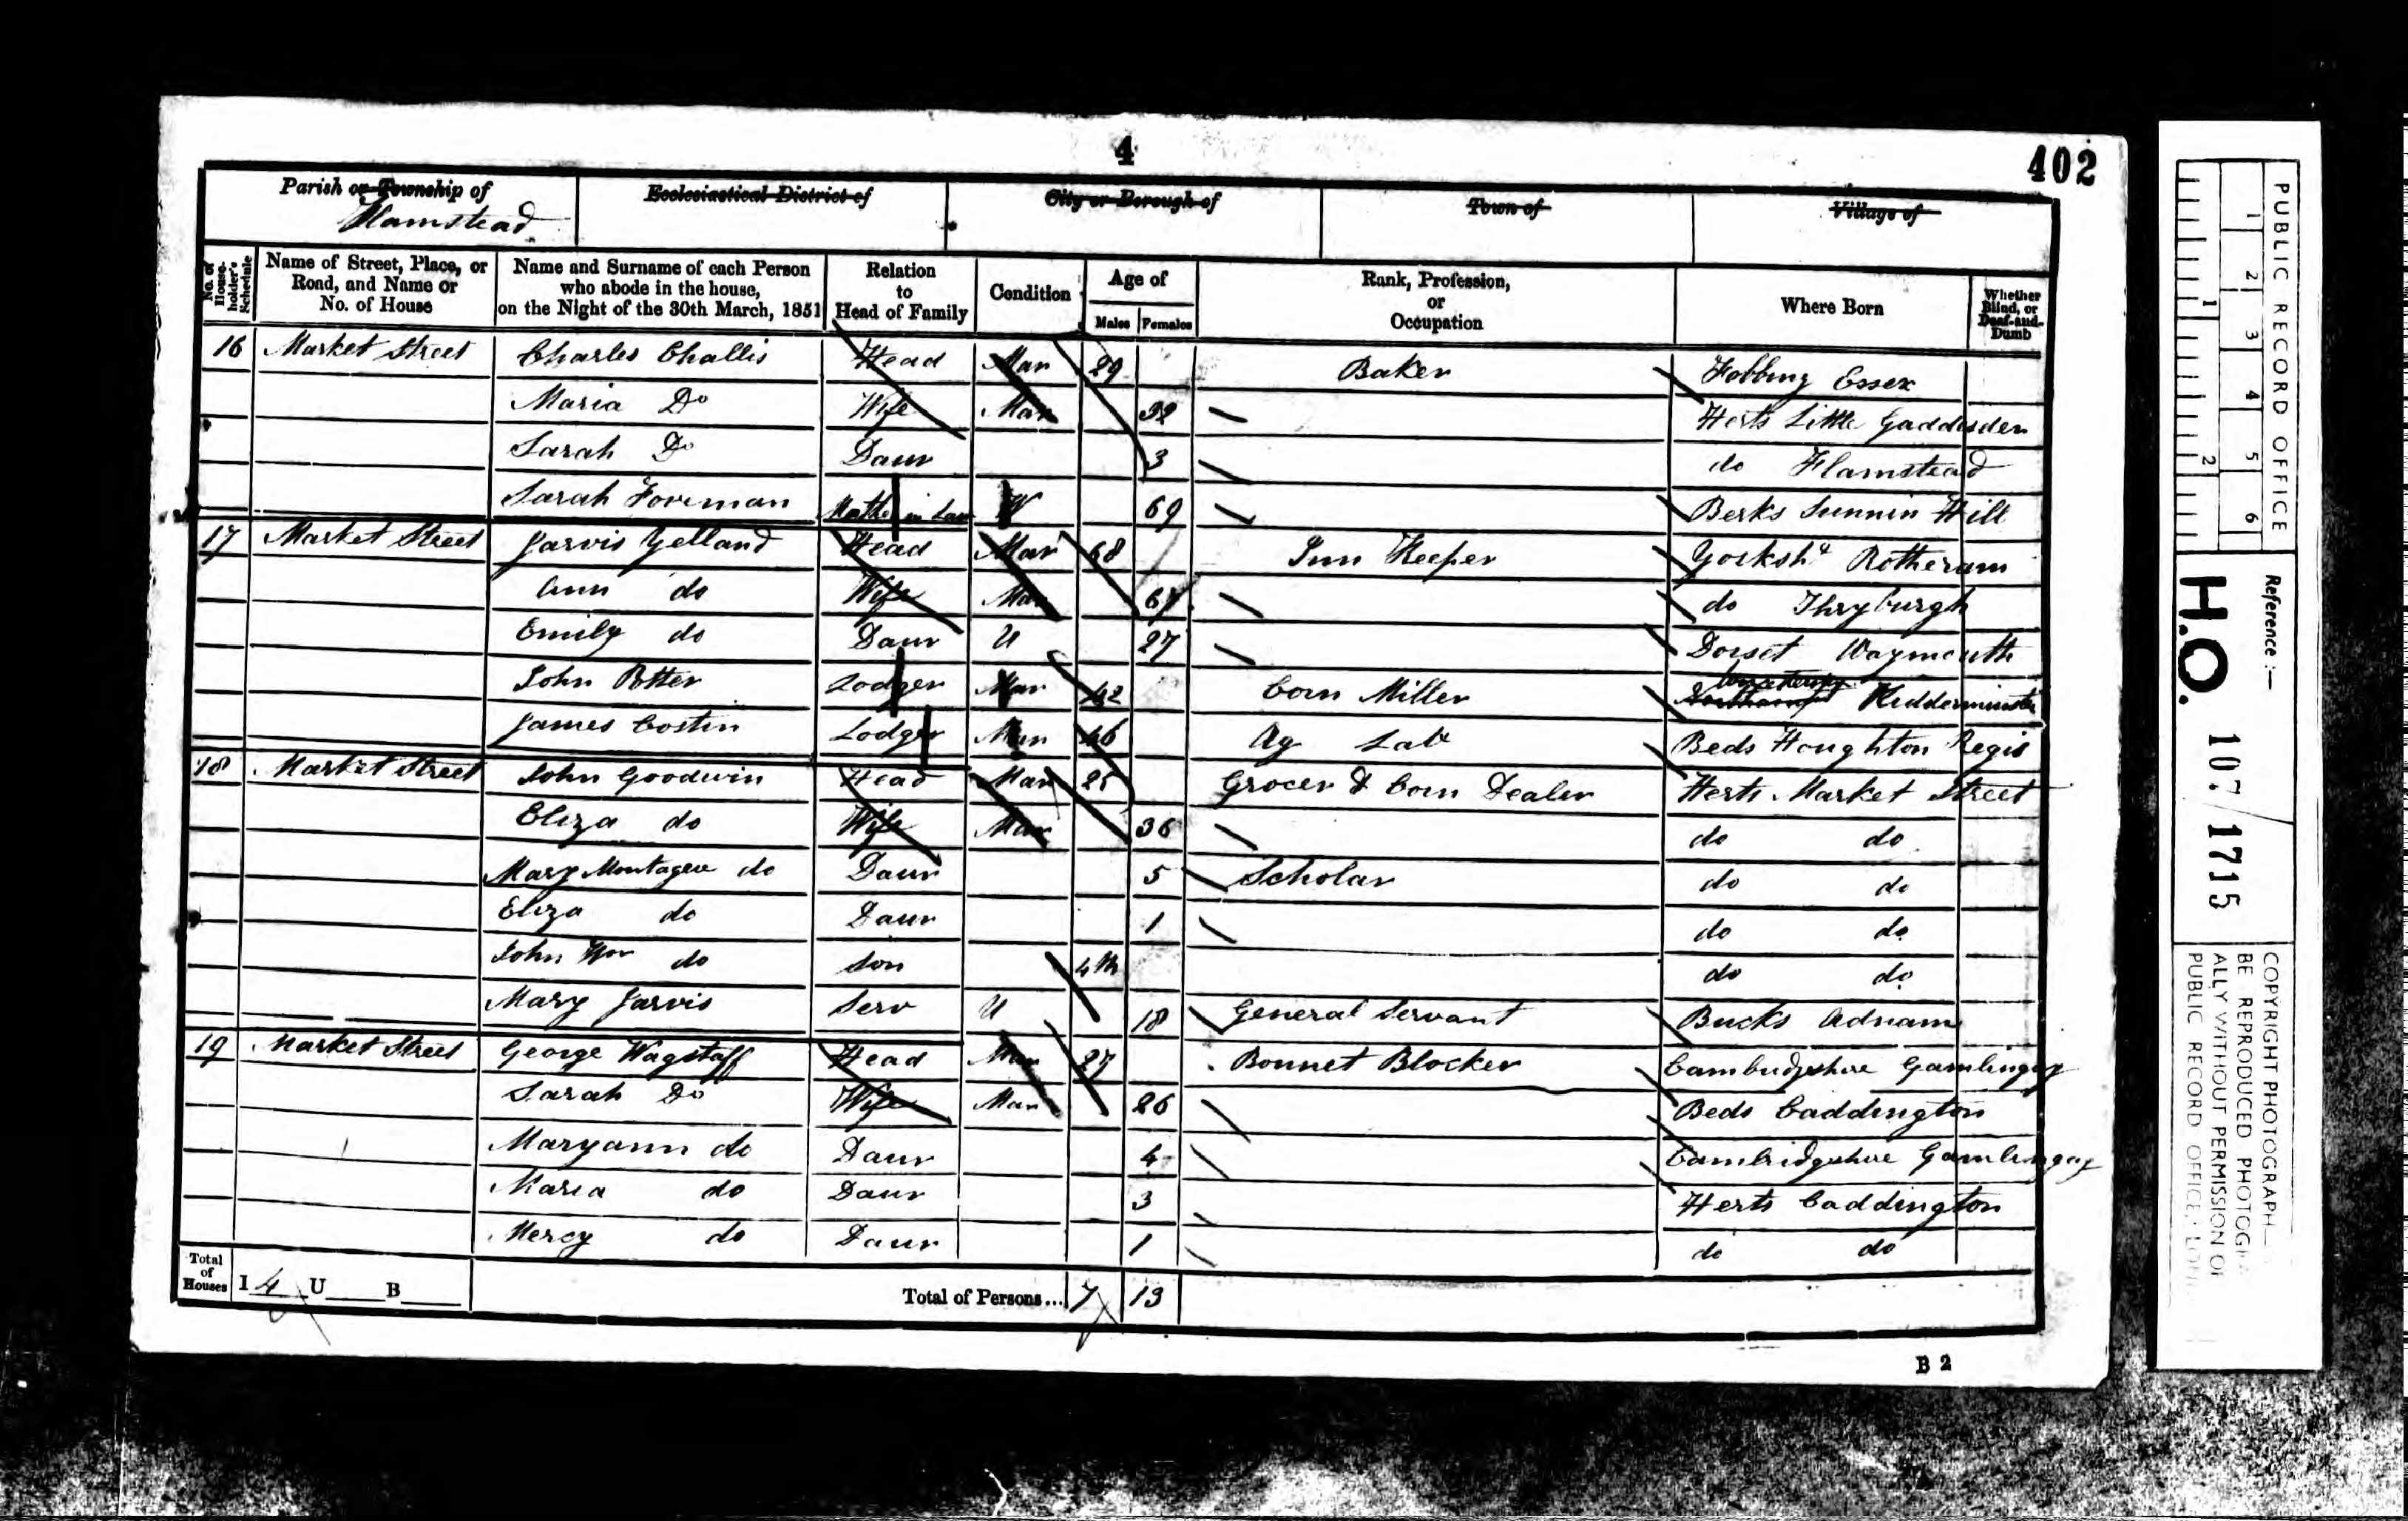 4
402
Parish or Township of Ecclesiastical District of City or Borough of Town of Village of
Flamstead
No. of House-holder's Schedule Name of Street, Place, or Road, and Name or No. of House Name and Surname of each Person who abode in the house, on the Night of the 30th March, 1851 Relation to Head of Family Condition Age of Males Females Rank, Profession, or Occupation Where Born Whether Blind, or Deaf-and-Dumb
16 Market Street Charles Challis Head Mar 29 Baker Fobbing Essex
Maria Do Wife Mar 32 Herts Little Gaddesden
Sarah Do Daur 3 do Flamstead
Sarah Foreman Mother in Law W 69 Berks Sunnin Hill
17 Market Street Jarvis Yelland Head Mar 68 Inn Keeper Yorksh Rotheram
Ann do Wife Mar 67 do Thryburgh
Emily do Daur U 27 Dorset Waymouth
John Potter Lodger Mar 42 Corn Miller Kidderminster
James Costin Lodger Mar 46 Ag Lab Beds Houghton Regis
18 Market Street John Goodwin Head Mar 25 Grocer & Corn Dealer Herts Market Street
Eliza do Wife Mar 36 do do
Mary Montague do Daur 5 Scholar do do
Eliza do Daur 1 do do
John Wm do Son 4m do do
Mary Jarvis Serv U 18 General Servant Bucks Adnam
19 Market Street George Wagstaff Head Mar 27 Bonnet Blocker Cambridgshire Gamlingay
Sarah Do Wife Mar 26 Beds Caddington
Maryann do Daur 4 Cambridgshire Gamlingay
Maria do Daur 3 Herts Caddington
Mercy do Daur 1 do do
Total of Houses I 4 U B Total of Persons... 7 13
B 2
PUBLIC RECORD OFFICE
1 2 3 4 5 6
1 2
Reference:-
H.O. 107/1715
COPYRIGHT PHOTOGRAPH-
BE REPRODUCED PHOTOG
ALLY WITHOUT PERMISSION OF
PUBLIC RECORD OFFICE,